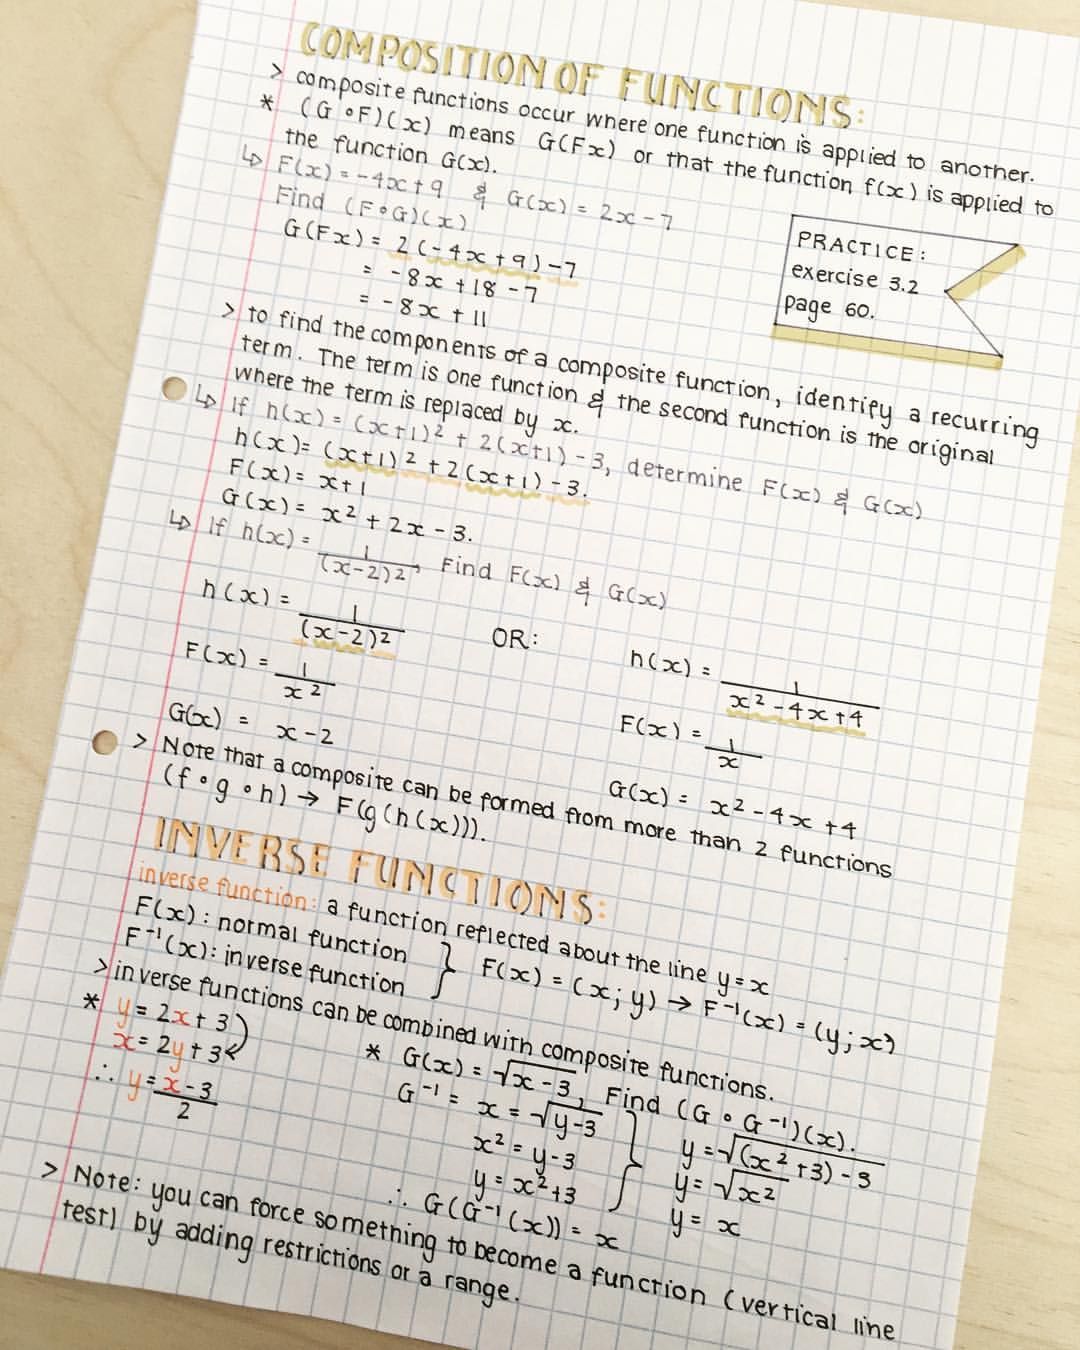 COMPOSITION OF FUNCTIONS:
> composite functions occur where one function is applied to another.
* (G∘F)(x) means G(Fx) or that the function f(x) is applied to
the function G(x).
↳ F(x) = -4x+9 & G(x) = 2x-7
Find (F∘G)(x)
G(Fx) = 2(-4x+9)-7
= -8x +18 -7
= -8x +11
PRACTICE:
exercise 3.2
page 60.
> to find the components of a composite function, identify a recurring
term. The term is one function & the second function is the original
where the term is replaced by x.
↳ If h(x) = (x+1)² + 2(x+1) -3, determine F(x) & G(x)
h(x) = (x+1)² + 2(x+1) -3.
F(x) = x+1
G(x) = x² + 2x -3.
↳ If h(x) = 1/(x-2)², Find F(x) & G(x)
h(x) = 1/(x-2)²
F(x) = 1/x²
G(x) = x-2
OR:
h(x) = 1/x²-4x+4
F(x) = 1/x
G(x) = x²-4x+4
> Note that a composite can be formed from more than 2 functions
(f∘g∘h) → F(g(h(x))).
INVERSE FUNCTIONS:
inverse function: a function reflected about the line y=x
F(x): normal function
F⁻¹(x): inverse function
} F(x) = (x;y) → F⁻¹(x) = (y;x)
> inverse functions can be combined with composite functions.
* y = 2x+3
x = 2y+3
∴ y = x-3/2
* G(x) = √x-3, Find (G∘G⁻¹)(x).
G⁻¹ = x = √y-3
x² = y-3
y = x²+3
} y = √(x²+3)-3
y = √x²
y = x
∴ G(G⁻¹(x)) = x
> Note: you can force something to become a function (vertical line
test) by adding restrictions or a range.